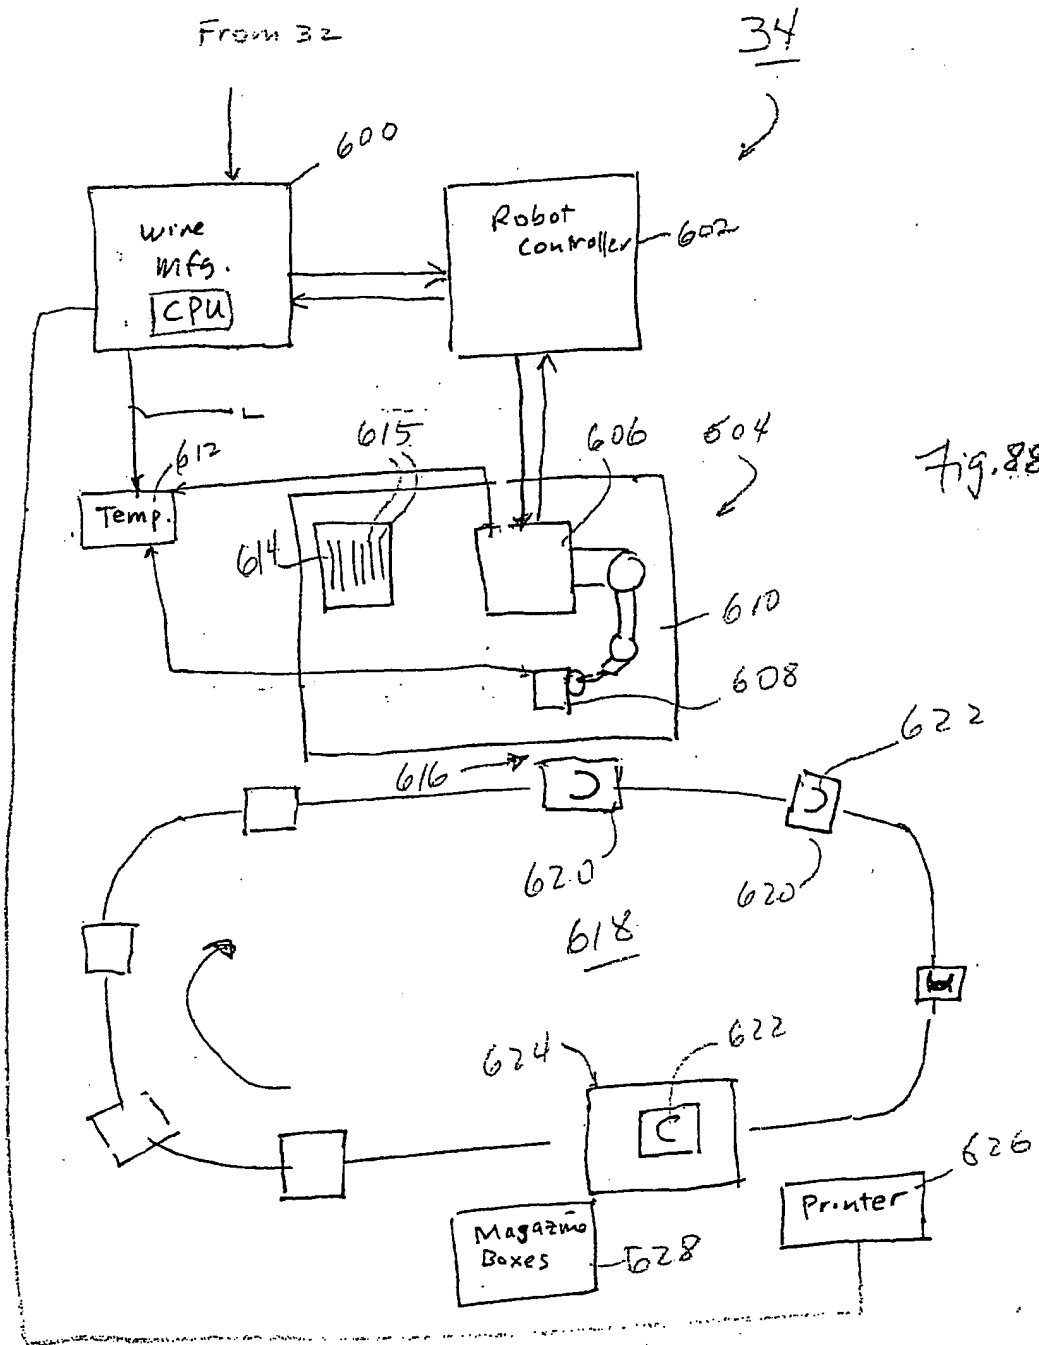 From 32
34
600
Wire
Mfg.
CPU
Robot
Controller
602
L
612
615
606
604
Fig. 88
Temp.
614
610
608
616
622
620
620
618
624
622
626
Printer
Magazine
Boxes
628